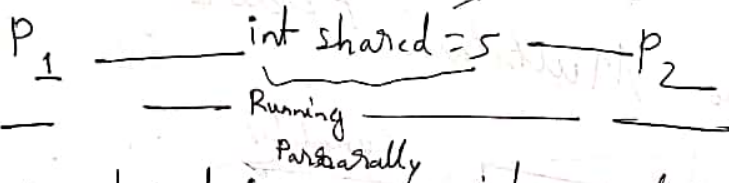 P1 int shared = 5 P2
Running
Parrarally